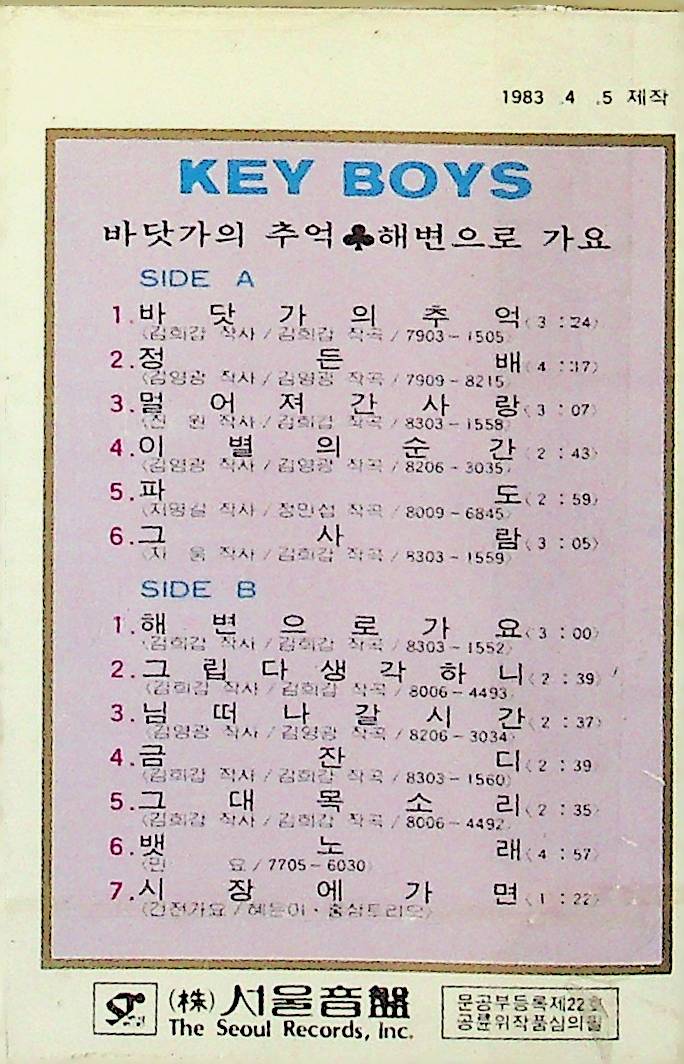 1983 .4 .5 제작
KEY BOYS
바닷가의 추억♣해변으로 가요
SIDE A
1.바닷가의추억〈3 : 24〉
〈김희갑 작사 / 김희갑 작곡 / 7903－1505〉
2.정든배〈4 : 17〉
〈김영광 작사 / 김영광 작곡 / 7909－8215〉
3.멀어져간사랑〈3 : 07〉
원 작사 / 김희갑 작곡 / 8303－1558〉
4.이별의순간〈2 : 43〉
〈김영광 작사 / 김영광 작곡 / 8206－3035〉
5.파도〈2 : 59〉
작사 / 정민섭 작곡 / 8009－6845〉
6.그사람〈3 : 05〉
〈지 웅 작사 / 김희갑 작곡 / 8303－1559〉
SIDE B
1.해변으로가요〈3 : 00〉
〈김희갑 작사 / 김희갑 작곡 / 8303－1552〉
2.그립다생각하니〈2 : 39〉
〈김희갑 작사 / 김희갑 작곡 / 8006－4493〉
3.님떠나갈시간〈2 : 37〉
〈김영광 작사 / 김영광 작곡 / 8206－3034〉
4.금잔디〈2 : 39〉
〈김희갑 작사 / 김희갑 작곡 / 8303－1560〉
5.그대목소리〈2 : 35〉
〈김희갑 작사 / 김희갑 작곡 / 8006－4492〉
6.뱃노래〈4 : 57〉
〈민 요 / 7705－6030〉
7.시장에가면〈1 : 22〉
〈건전가요 / 혜은이・홍삼트리오〉
(株) 서울音盤
The Seoul Records, Inc.
문공부등록제22호
공륜위작품심의필